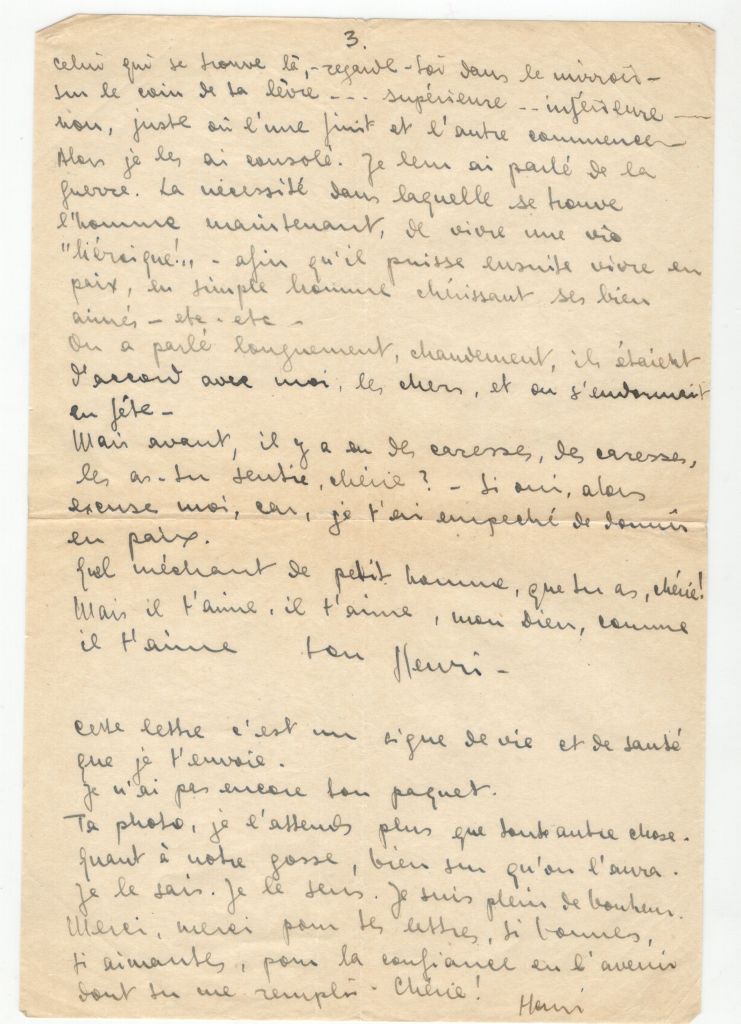 3.
celui qui se trouve là, - regarde-toi dans le mirroir -
sur le coin de ta lèvre - - - supérieure - - inférieure -
non, juste où l'une finit et l'autre commence -
Alors je les ai consolé. Je leur ai parlé de la
guerre. La nécessité dans laquelle se trouve
l'homme maintenant, de vivre une vie
"héroique!" - afin qu'il puisse ensuite vivre en
paix, en simple homme chérissant ses bien
aimés - etc - etc -
On a parlé longuement, chaudement, ils étaient
d'accord avec moi, les chers, et on s'endormait
en fête -
Mais avant, il y a eu des caresses, des caresses,
les as-tu sentie, chérie ? - Si oui, alors
excuse moi, car, je t'ai empeché de dormir
en paix.
Quel méchant de petit homme, que tu as, chérie!
Mais il t'aime, il t'aime, mon dieu, comme
il t'aime ton Henri -
cette lettre c'est un signe de vie et de santé
que je t'envoie.
Je n'ai pas encore ton paquet.
Ta photo, je l'attends plus que toute autre chose.
Quant à notre gosse, bien sur qu'on l'aura.
Je le sais. Je le sens. Je suis plein de bonheur.
Merci, merci pour tes lettres, si bonnes,
si aimantes, pour la confiance en l'avenir
dont tu me remplis - Chérie!
Henri